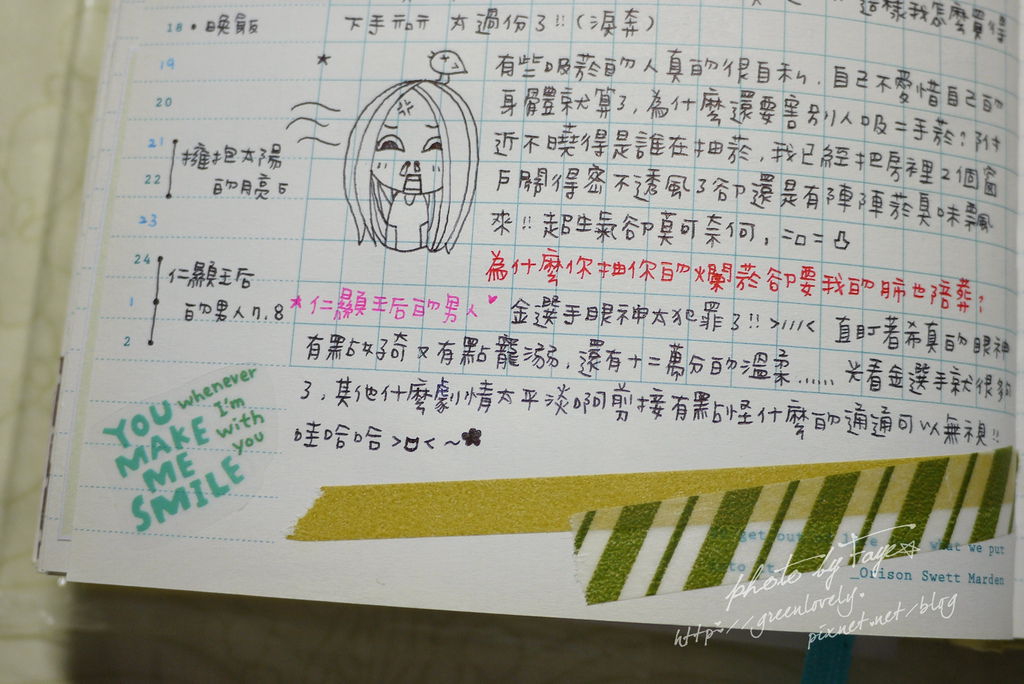 這樣我怎麼買得
18 • 晚飯
下手ㄇㄇ 太過份了!!(淚奔)
19
20
21
22
23
24
1
2
擁抱太陽
的月亮5
仁顯王后
的男人7.8
★ 有些吸菸的人真的很自私, 自己不愛惜自己的
身體就算了, 為什麼還要害別人吸二手菸? 附
近不曉得是誰在抽菸, 我已經把房裡2個窗
戶關得密不透風了卻還是有陣陣菸臭味飄
來!! 超生氣卻莫可奈何, =口=凸
為什麼你抽你的爛菸卻要我的肺也陪葬?
★仁顯王后的男人♥ 金選手眼神太犯罪了!! >////< 直盯著希真的眼神
有點好奇又有點寵溺, 還有十二萬分的溫柔...... 光看金選手就很多可
3, 其他什麼劇情太平淡啊剪接有點怪什麼的通通可以無視!!
哇哈哈 >口< ~
YOU
MAKE
ME
SMILE
whenever
I'm
with
you
get out
what we put
_Orison Swett Marden
photo by Faye☆
http://greenlovely.
pixnet.net/blog